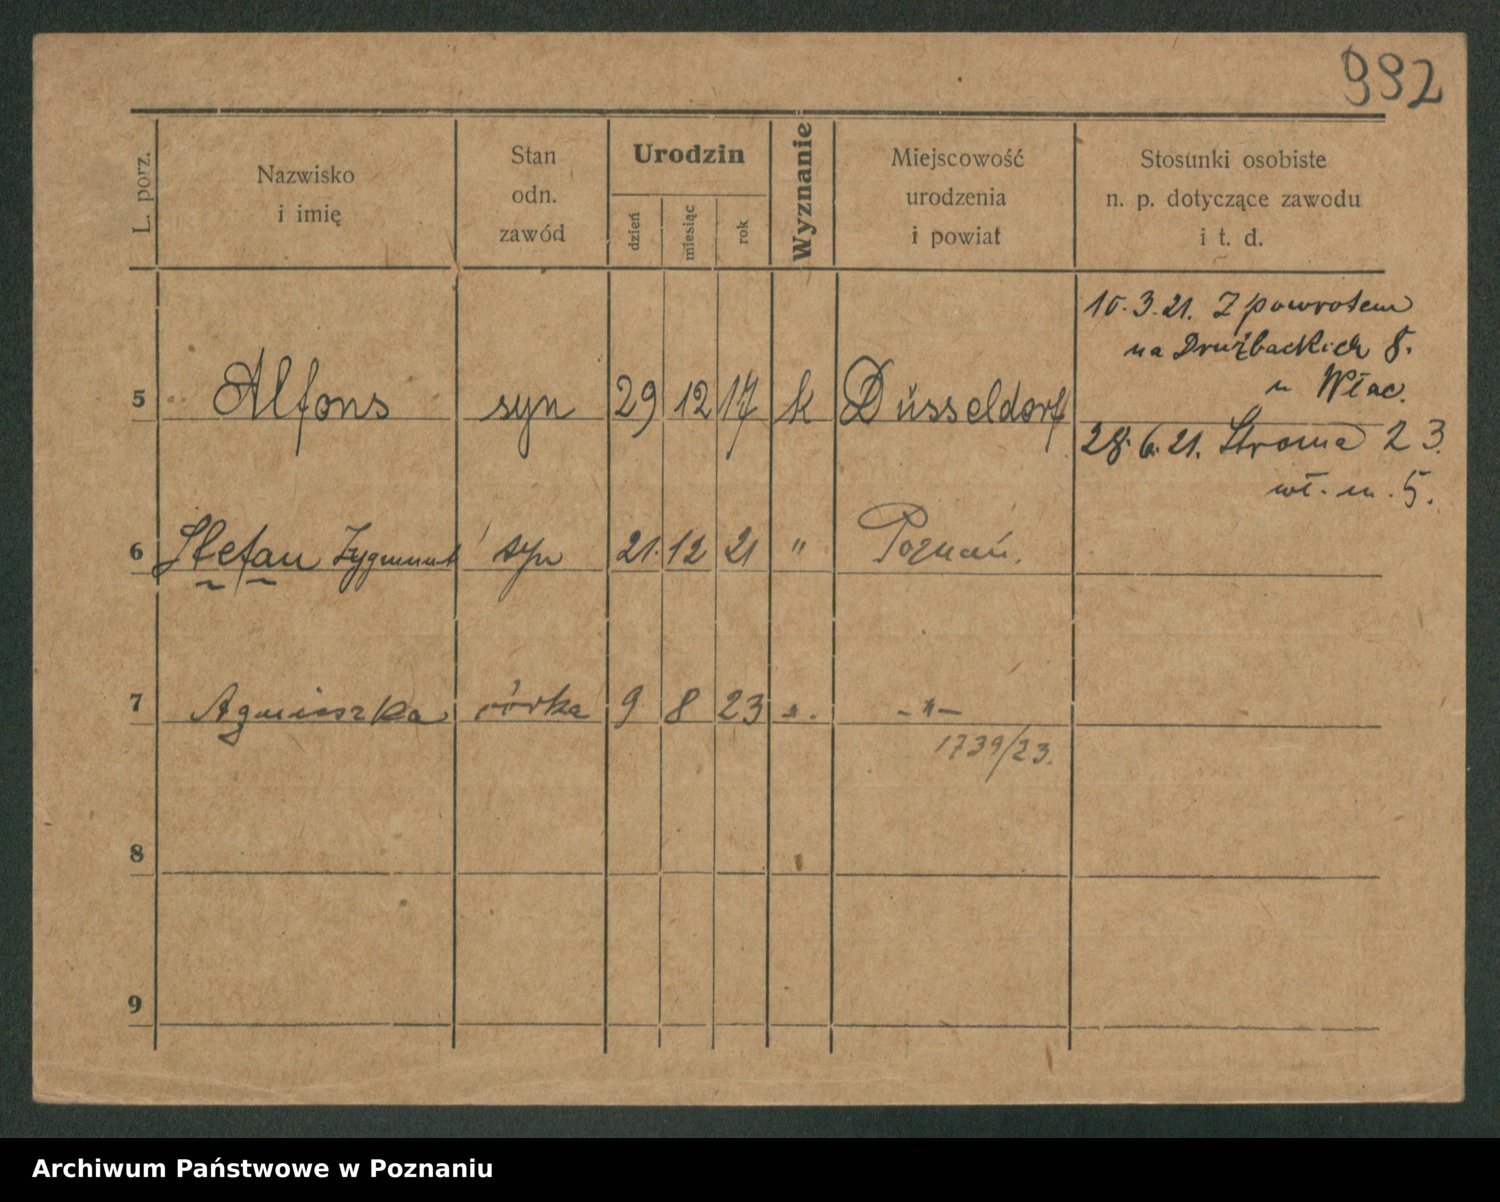 992
L. porz.
Nazwisko
i imię
Stan
odn.
zawód
Urodzin
dzień
miesiąc
rok
Wyznanie
Miejscowość
urodzenia
i powiat
Stosunki osobiste
n. p. dotyczące zawodu
i t. d.
10.3.21. Z powrotem
na Drużbackich 8.
u Włac.
5 Alfons syn 29 12 17 k Düsseldorf
28.6.21. Stroma 23
wł. m. 5.
6 Stefan Zygmunt syn 21. 12 21 " Poznań.
7 Agnieszka córka 9 8 23 -"- -"-
1739/23.
8
9
Archiwum Państwowe w Poznaniu